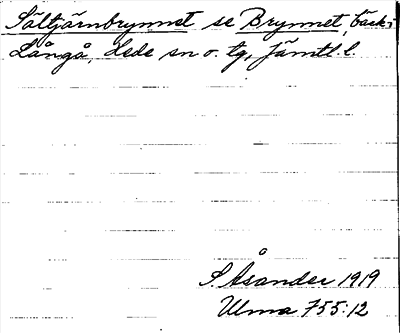 Sältjärnbrynnet se Brynnet, bäck i
Långå, Hede sn o. tg, Jämtl. l.
S. Åsander 1919
Ulma 755:12